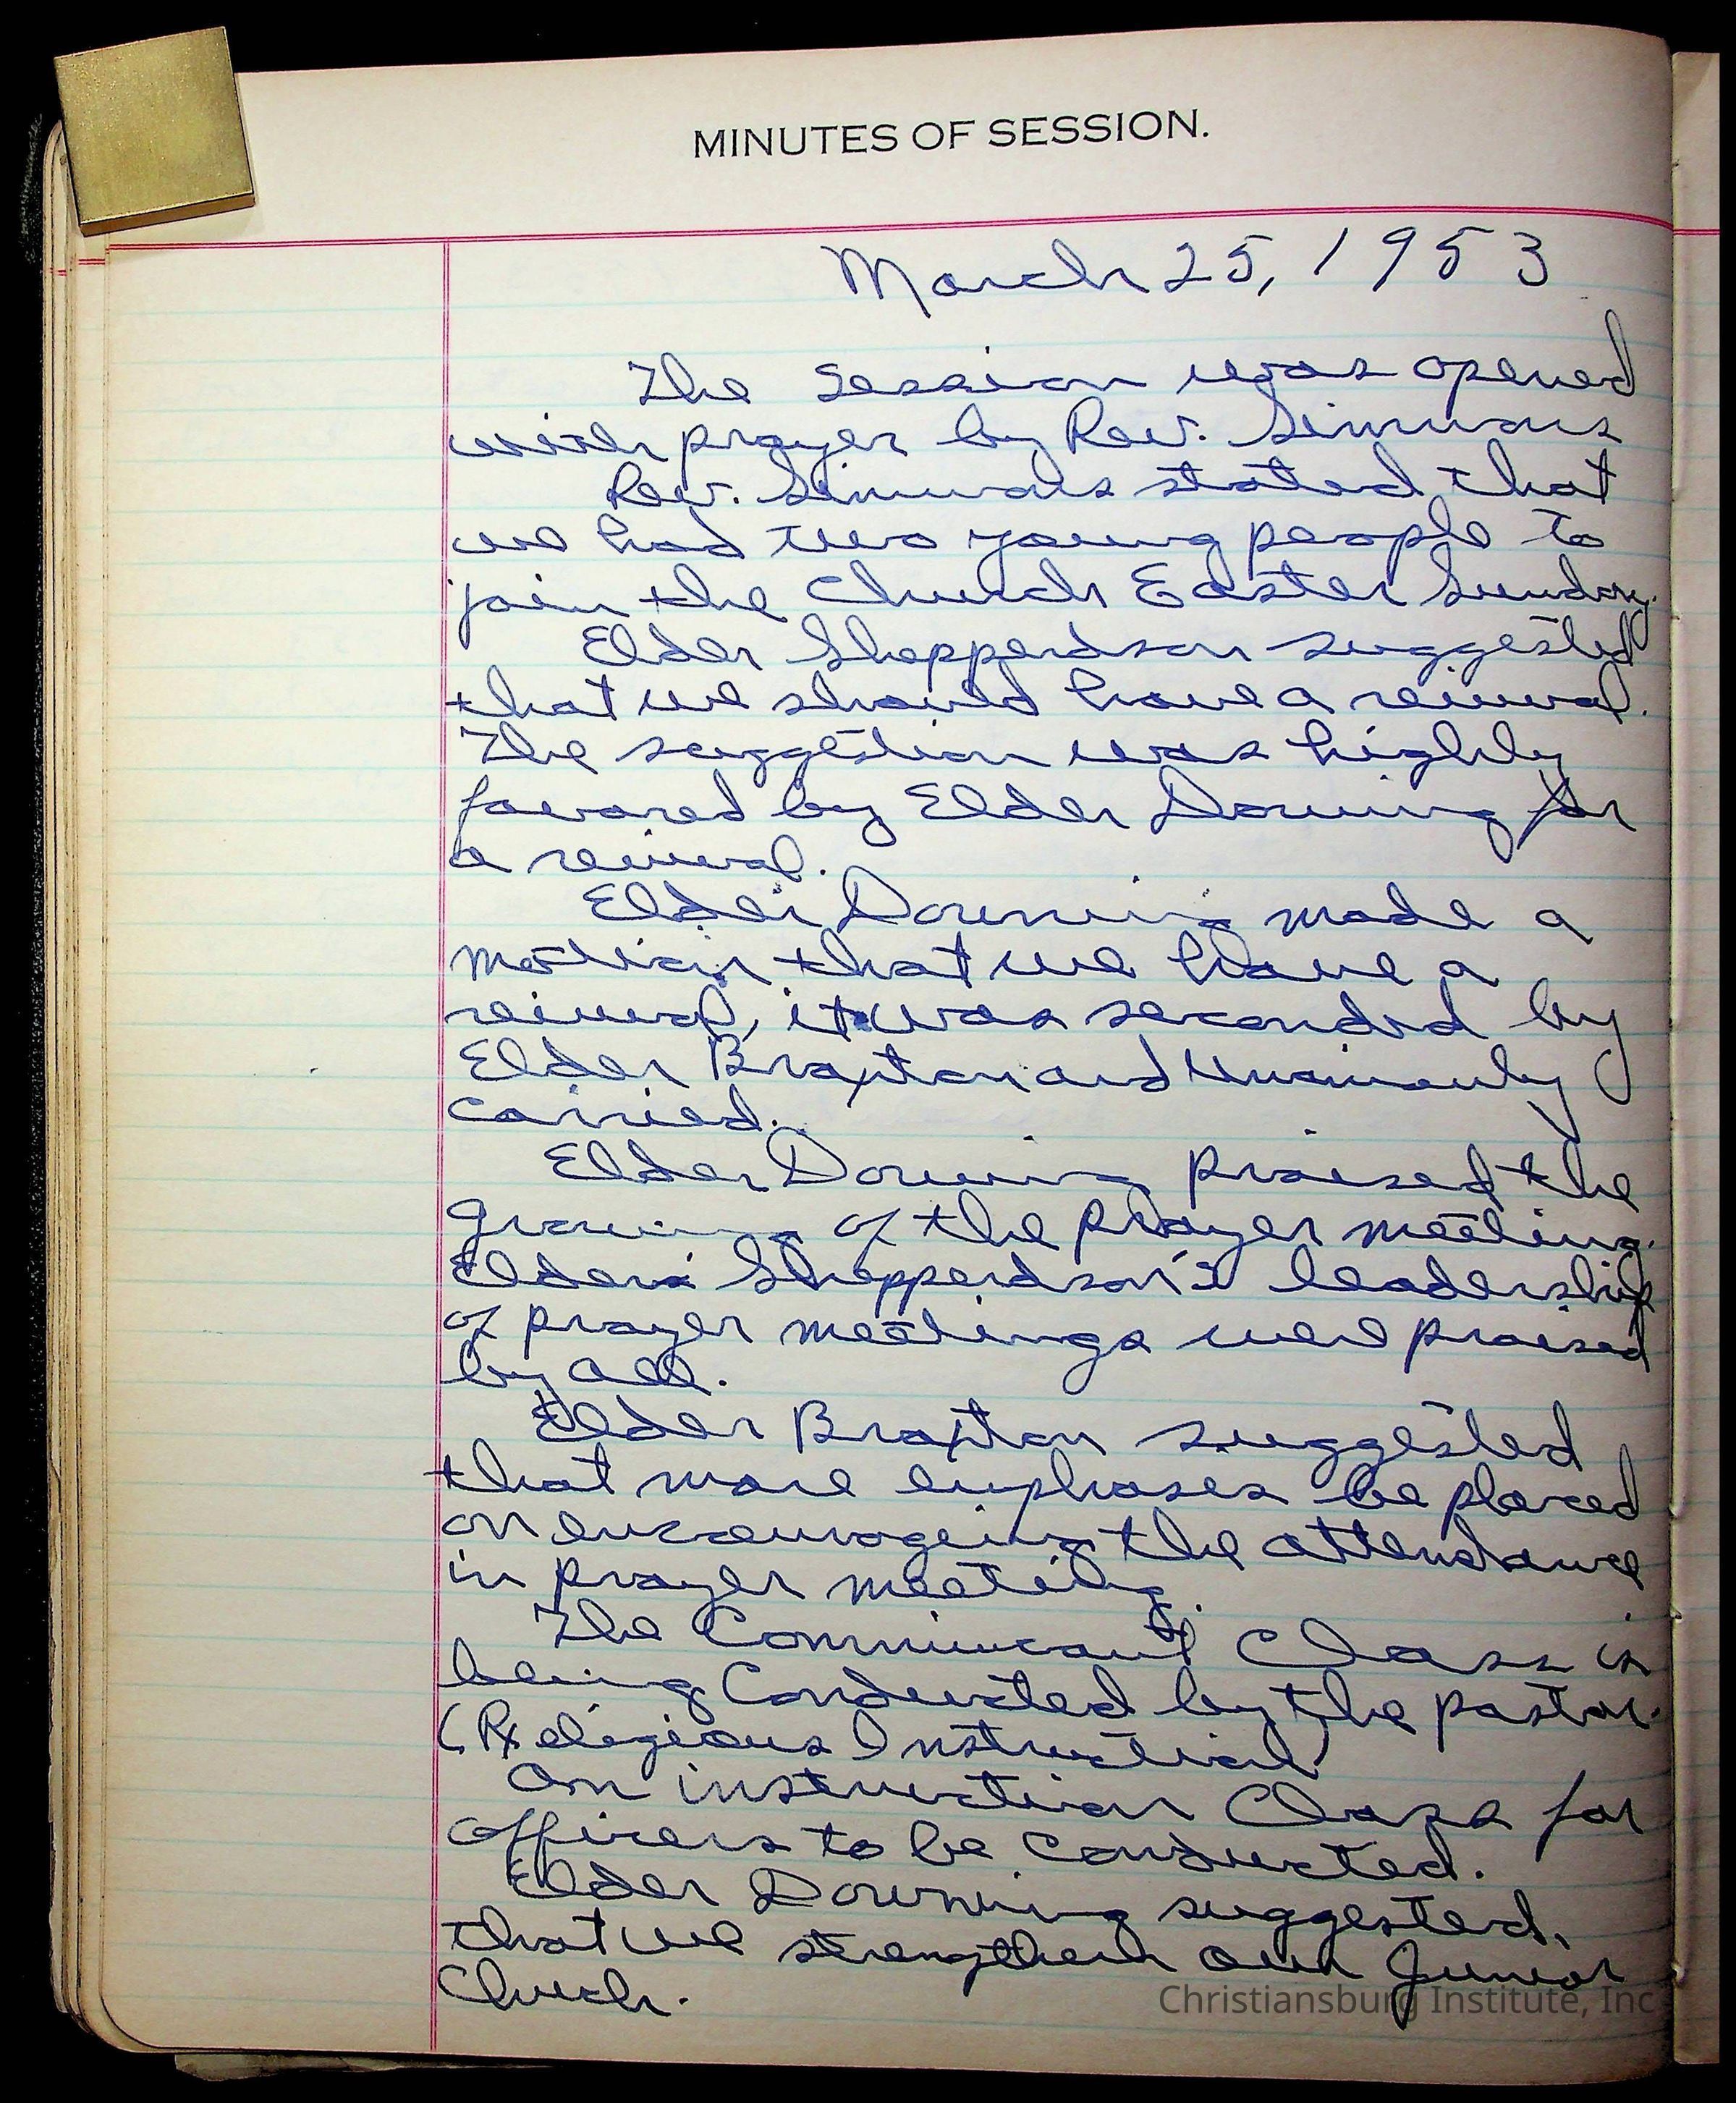 MINUTES OF SESSION.
March 25, 1953
The Session was opened
with prayer by Rev. Simmons
Rev. Simmons stated that
we had two young people to
join the Church Easter Sunday.
Elder Shepperdson suggested
that we should have a revival.
The suggestion was highly
favored by Elder Downing for
a revival.
Elder Downing made a
motion that we have a
revival, it was seconded by
Elder Braxton and Unanimously
carried.
Elder Downing praised the
growing of the prayer meeting.
Elder Shepperdson's leadership
of prayer meetings were praised
by all.
Elder Braxton suggested
that more emphases be placed
on encourageing the attendance
in prayer meeting.
The Communicant Class is
being Conducted by the pastor.
(Religious Instruction)
An instruction Class for
officers to be Conducted.
Elder Downing suggested,
that we strengthen our Junior
Church.
Christiansburg Institute, Inc